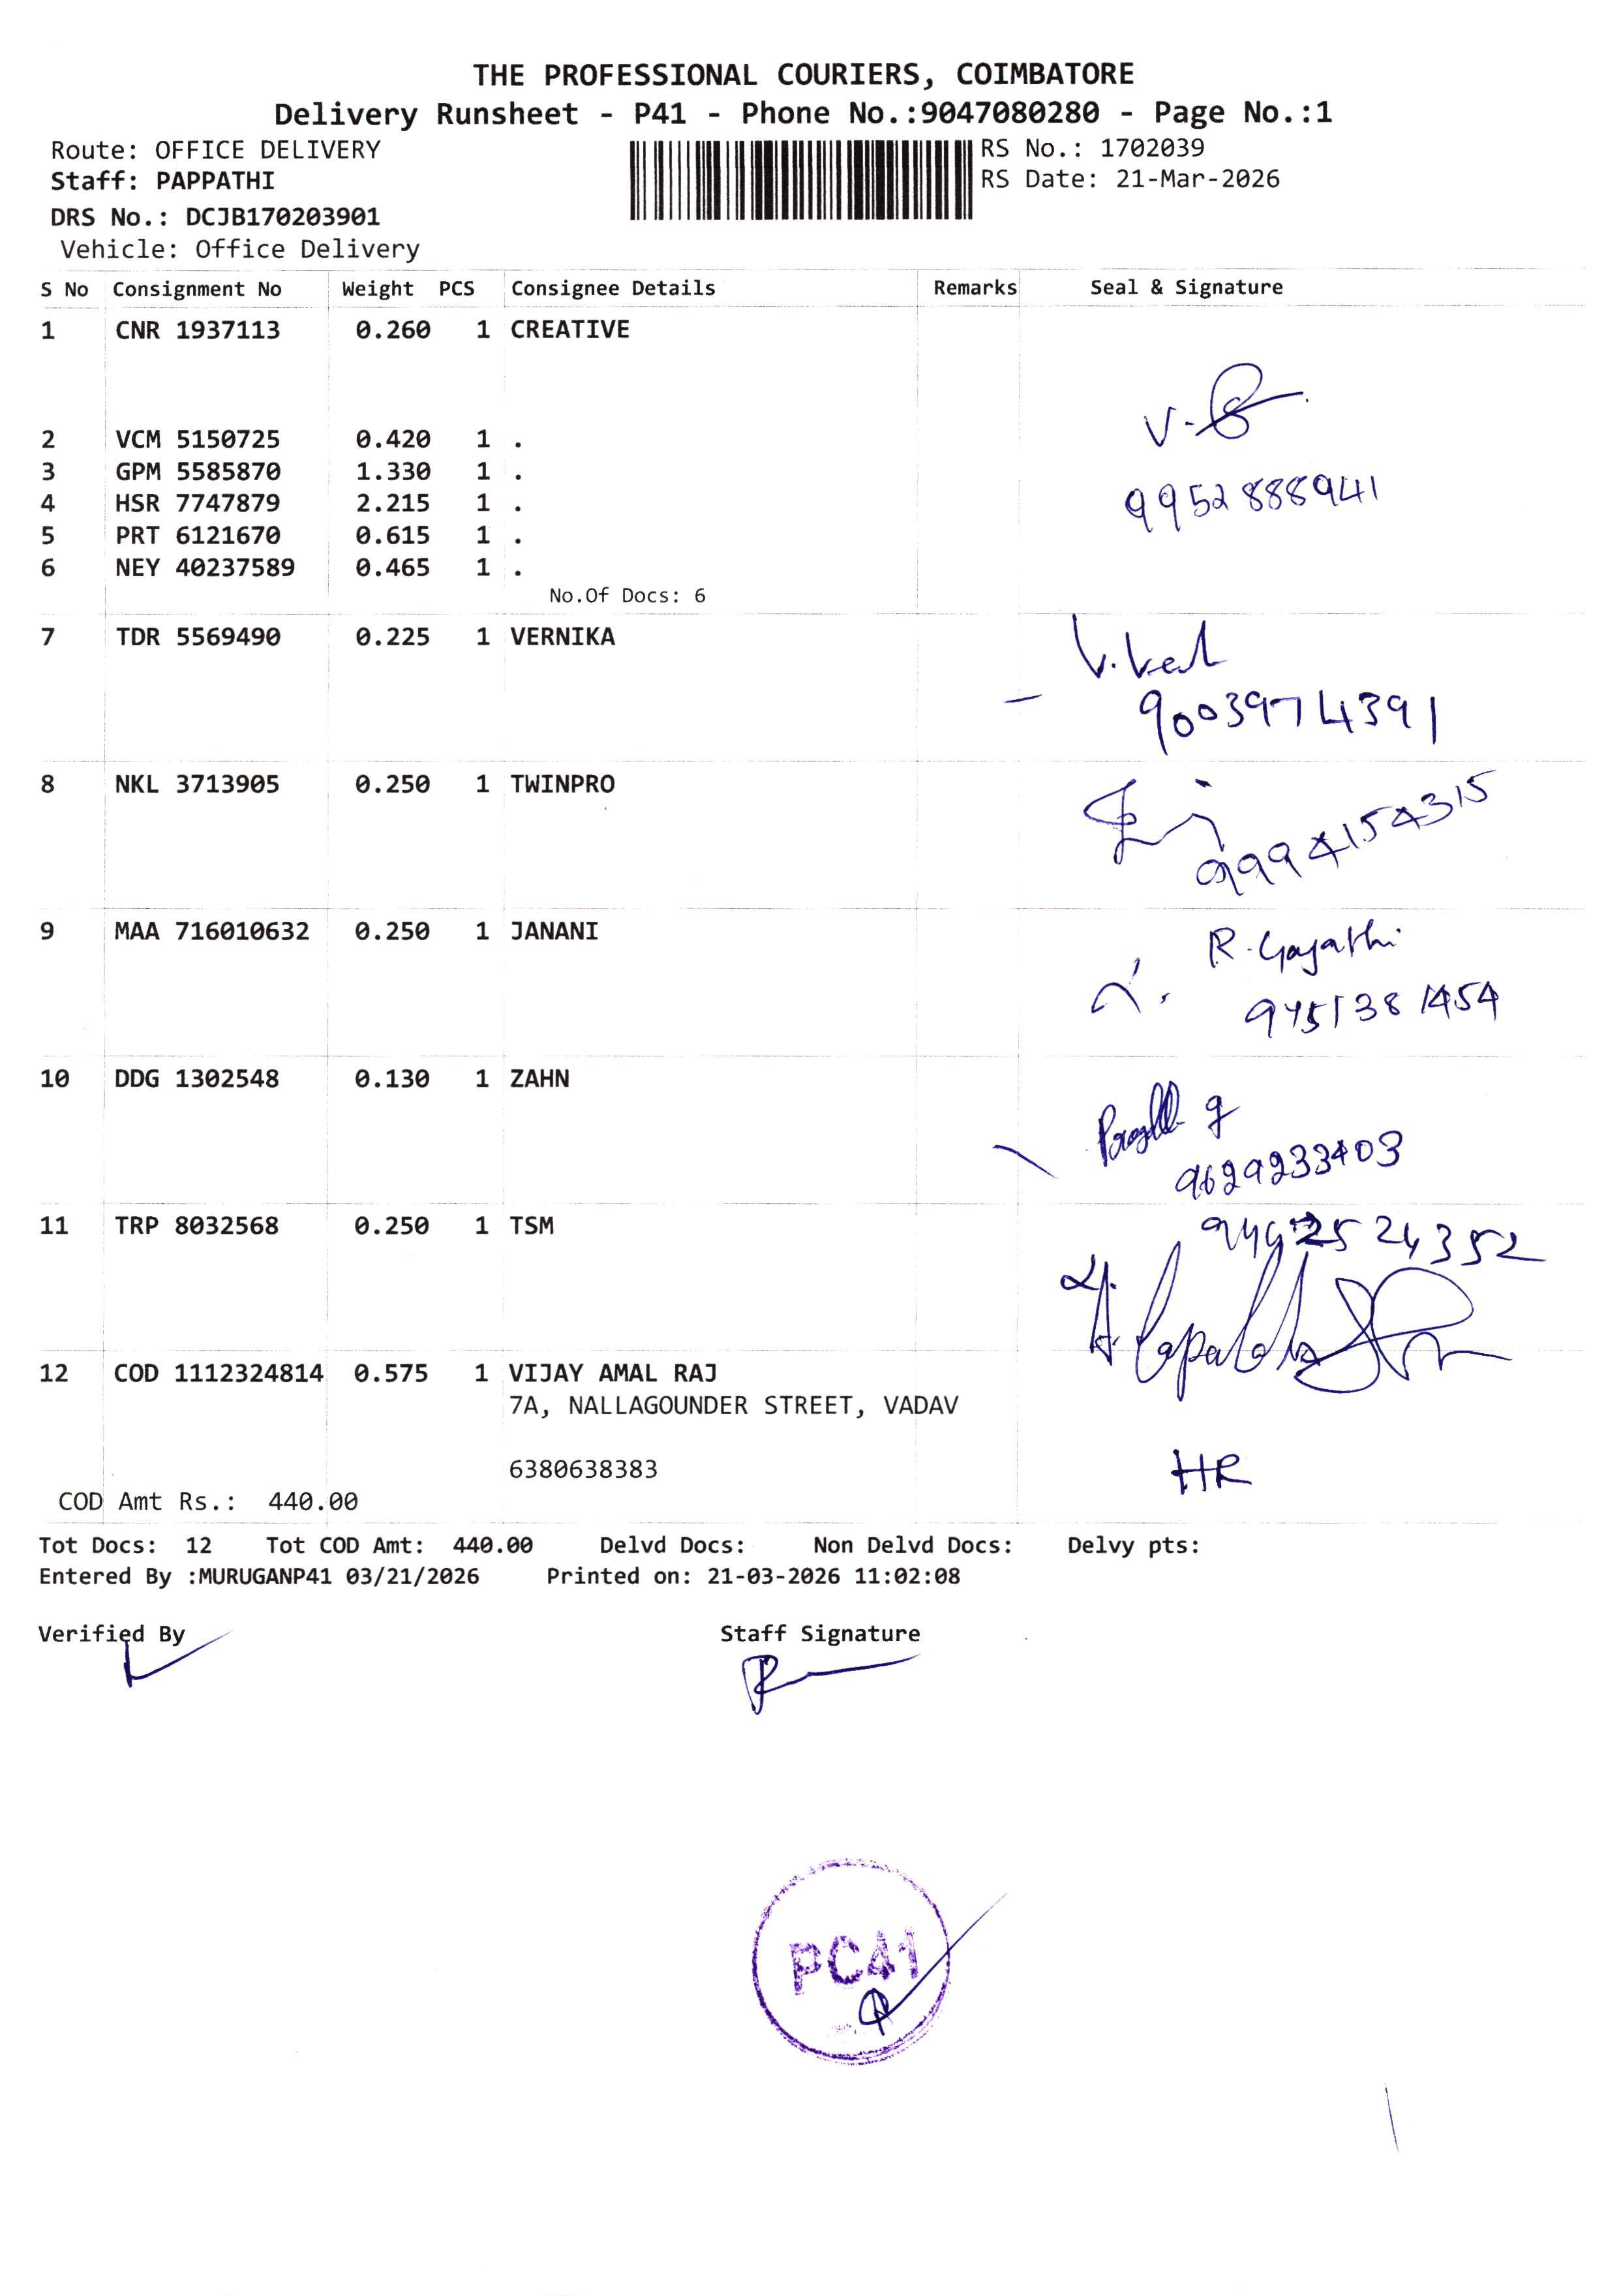 THE PROFESSIONAL COURIERS, COIMBATORE
Delivery Runsheet - P41 - Phone No.:9047080280 - Page No.:1
Route: OFFICE DELIVERY
RS No.: 1702039
Staff: PAPPATHI
RS Date: 21-Mar-2026
DRS No.: DCJB170203901
Vehicle: Office Delivery
S No Consignment No Weight PCS Consignee Details Remarks Seal & Signature
1 CNR 1937113 0.260 1 CREATIVE
V.
2 VCM 5150725 0.420 1 .
3 GPM 5585870 1.330 1 .
9952888941
4 HSR 7747879 2.215 1 .
5 PRT 6121670 0.615 1 .
6 NEY 40237589 0.465 1 .
No.Of Docs: 6
7 TDR 5569490 0.225 1 VERNIKA
9003974391
8 NKL 3713905 0.250 1 TWINPRO
9994154315
9 MAA 716010632 0.250 1 JANANI
R. Gayathi
10 DDG 1302548 0.130 1 ZAHN
9629233403
11 TRP 8032568 0.250 1 TSM
12 COD 1112324814 0.575 1 VIJAY AMAL RAJ
7A, NALLAGOUNDER STREET, VADAV
6380638383
HR
COD Amt Rs.: 440.00
Tot Docs: 12 Tot COD Amt: 440.00 Delvd Docs: Non Delvd Docs: Delvy pts:
Entered By :MURUGANP41 03/21/2026 Printed on: 21-03-2026 11:02:08
Verified By Staff Signature
PC41